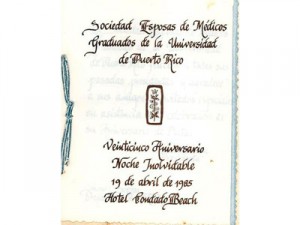 Sociedad Esposas de Médicos
Graduados de la Universidad
de Puerto Rico
Veinticinco Aniversario
Noche Inolvidable
19 de abril de 1985
Hotel Condado Beach